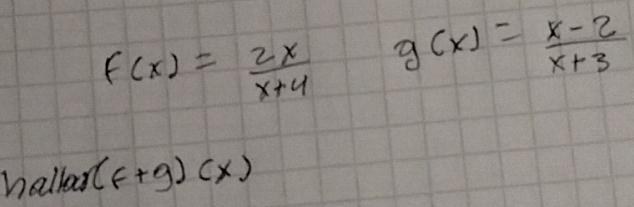 f(x) = 2x/x+4 g(x) = x-2/x+3
hallar(f+g)(x)